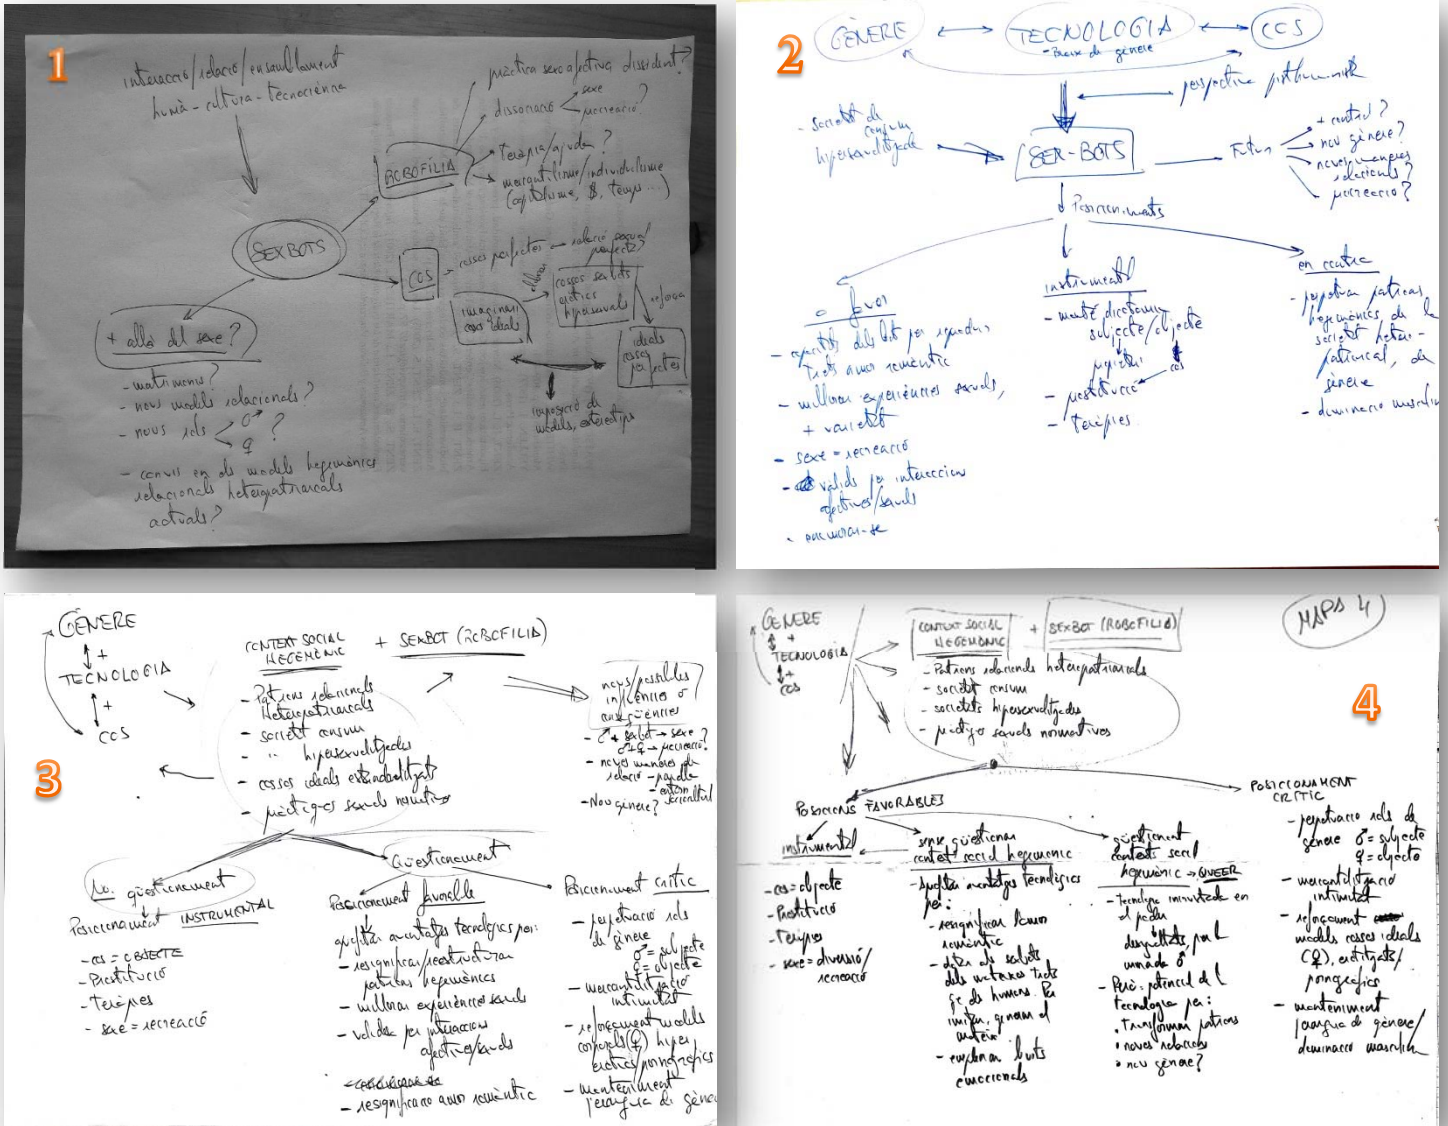 1
interacció/relació/ensamblament
humà-cultura-tecnociència
SEXBOTS
ROBOFÍLIA
pràctica sexoafectiva dissident?
dissociació
sexe
procreació?
teràpia/ajuda?
mercantilisme/individualisme
(capitalisme, $, temps...)
COS
cossos perfectes
relació sexual
perfecta?
imaginari
cos ideals
cossos sexbots
eròtics
hipersexuals
reforça
ideals
cossos
perfectes
imposició de
models, estereotips
+ allà del sexe?
- matrimonis?
- nous models relacionals?
- nous rols ♂ ♀ ?
- canvi en els models hegemònics
relacionals heteropatriarcals
actuals?
2
GÈNERE
TECNOLOGIA
- Biaix de gènere
COS
perspectiva posthumanista
- societat de
consum
hipersexualitzada
SEX-BOTS
Futur
+ control?
nou gènere?
noves maneres
relacionals?
procreació?
Posicionaments
a favor
- capacitats dels bots per reproduir
trets amor romàntic
- millorar experiències sexuals,
+ varietat
- sexe = recreació
- vàlids per interaccions
afectives/sexuals
- enamorar-se
instrumental
- manté dicotomia
subjecte/objecte
cos
- prostitució
- teràpies
en contra
- perpetuar patrons
hegemònics de la
societat hetero-
patriarcal, de
gènere
- dominació masculina
3
GÈNERE
+
TECNOLOGIA
+
COS
CONTEXT SOCIAL
HEGEMÒNIC
+ SEXBOT (ROBOFILIA)
- Patrons relacionals
Heteropatriarcals
- societat consum
- " hipersexualitzades
- cossos ideals estandaritzats
- pràctiques sexuals normatives
nous/possibles
influències o
conseqüències
- ♂ + sexbot → sexe?
♂+♀ → procreació?
- noves maneres de
relació - parella
- entorn
sociocultural
- Nou gènere?
No qüestionament
Posicionament INSTRUMENTAL
- cos = OBJECTE
- Prostitució
- Teràpies
- sexe = recreació
Qüestionament
Posicionament favorable
avantatges tecnològics per:
- resignificar/reestructurar
patrons hegemònics
- millorar experiències sexuals
- vàlides per interaccions
afectives/sexuals
- resignificació amor romàntic
Posicionament crític
- perpetuació rols
de gènere
♂ = subjecte
♀ = objecte
- mercantilització
intimitat
- reforçament models
corporals (♀) hiper
eròtics/pornogràfics
- manteniment
jerarquia de gènere
MAPA 4
4
GÈNERE
+
TECNOLOGIA
+
COS
CONTEXT SOCIAL
HEGEMÒNIC
+ SEXBOT (ROBOFILIA)
- Patrons relacionals heteropatriarcals
- societat consum
- societats hipersexualitzades
- pràctiques sexuals normatives
POSICIONS FAVORABLES
instrumental
- cos = objecte
- Prostitució
- Teràpies
- sexe = diversió/
recreació
sense qüestionar
context social hegemònic
avantatges tecnològics
per:
- resignificar l'amor
romàntic
- dotar als sexbots
dels mateixos trets
que els humans. Per
imitar, generen el
mateix
- emplenar buits
emocionals
qüestionant
context social
hegemònic → QUEER
- Tecnologia incrustada en
el poder
desigualtats, per la
mirada ♂
- Però: potencial de la
tecnologia per:
• transformar patrons
• noves relacions
• nou gènere?
POSICIONAMENT
CRÍTIC
- perpetuació rols de
gènere ♂ = subjecte
♀ = objecte
- mercantilització
intimitat
- reforçament
models cossos ideals
(♀), erotitzats/
pornogràfics
- manteniment
jerarquia de gènere/
dominació masculina